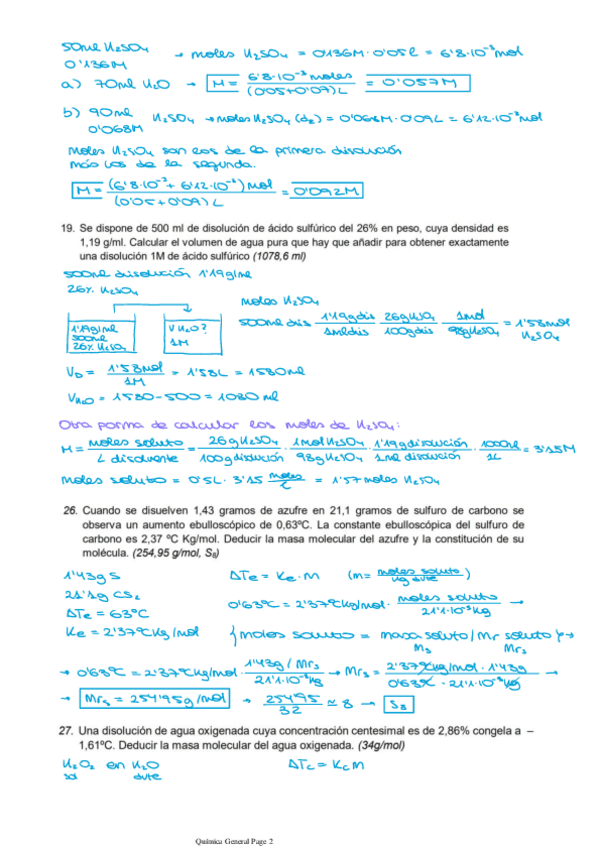 50ml H₂SO₄ → moles H₂SO₄ = 0'136M · 0'05l = 6'8·10⁻³ mol
0'136M
a) 70ml H₂O → M = 6'8·10⁻³ moles / (0'05+0'07)L = 0'057M
b) 90ml H₂SO₄ → moles H₂SO₄ (d₂) = 0'068M · 0'09L = 6'12·10⁻³ mol
0'068M
moles H₂SO₄ son los de la primera disolución
más los de la segunda.
M = (6'8·10⁻³ + 6'12·10⁻³) mol / (0'05+0'09) L = 0'092M
19. Se dispone de 500 ml de disolución de ácido sulfúrico del 26% en peso, cuya densidad es
1,19 g/ml. Calcular el volumen de agua pura que hay que añadir para obtener exactamente
una disolución 1M de ácido sulfúrico (1078,6 ml)
500ml disolución 1'19g/ml
26% H₂SO₄
moles H₂SO₄
1'19g/ml
500ml
26% H₂SO₄
V H₂O?
1M
500ml dis · 1'19g dis / 1ml dis · 26g H₂SO₄ / 100g dis · 1mol / 98g H₂SO₄ = 1'58mol H₂SO₄
V_D = 1'58mol / 1M = 1'58L = 1580ml
V_H₂O = 1580-500 = 1080 ml
Otra forma de calcular los moles de H₂SO₄:
M = moles soluto / L disolvente = 26g H₂SO₄ / 100g disolución · 1mol H₂SO₄ / 98g H₂SO₄ · 1'19g disolución / 1ml disolución · 1000ml / 1L = 3'15M
moles soluto = 0'5L · 3'15 moles / L = 1'57 moles H₂SO₄
26. Cuando se disuelven 1,43 gramos de azufre en 21,1 gramos de sulfuro de carbono se
observa un aumento ebulloscópico de 0,63ºC. La constante ebulloscópica del sulfuro de
carbono es 2,37 ºC Kg/mol. Deducir la masa molecular del azufre y la constitución de su
molécula. (254,95 g/mol, S₈)
1'43g S   ΔTe = Ke·M (m = moles soluto / kg dvte)
21'1g CS₂
ΔTe = 63ºC   0'63ºC = 2'37ºCKg/mol · moles soluto / 21'1·10⁻³Kg →
Ke = 2'37ºCKg/mol   { moles soluto = masa soluto / Mr soluto } →
M_S   Mr_S
→ 0'63ºC = 2'37ºCKg/mol · 1'43g / Mr_S / 21'1·10⁻³Kg → Mr_S = 2'37ºCKg/mol · 1'43g / 0'63ºC · 21'1·10⁻³Kg →
→ Mr_S = 254'95g/mol → 254'95 / 32 ≃ 8 → S₈
27. Una disolución de agua oxigenada cuya concentración centesimal es de 2,86% congela a –
1,61ºC. Deducir la masa molecular del agua oxigenada. (34g/mol)
H₂O₂ en H₂O   ΔTc = KcM
sol   dvte
Química General Page 2